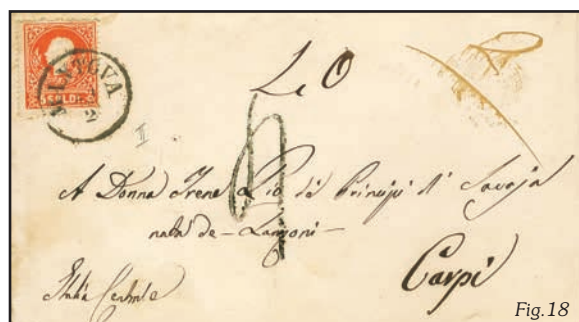 MANTOVA
1
2
5 SOLDI
L. O
II
A Donna Irene Pio dé Principi di Savoja
nata de - Lanzoni -
Carpi
Italia Centrale
Fig.18